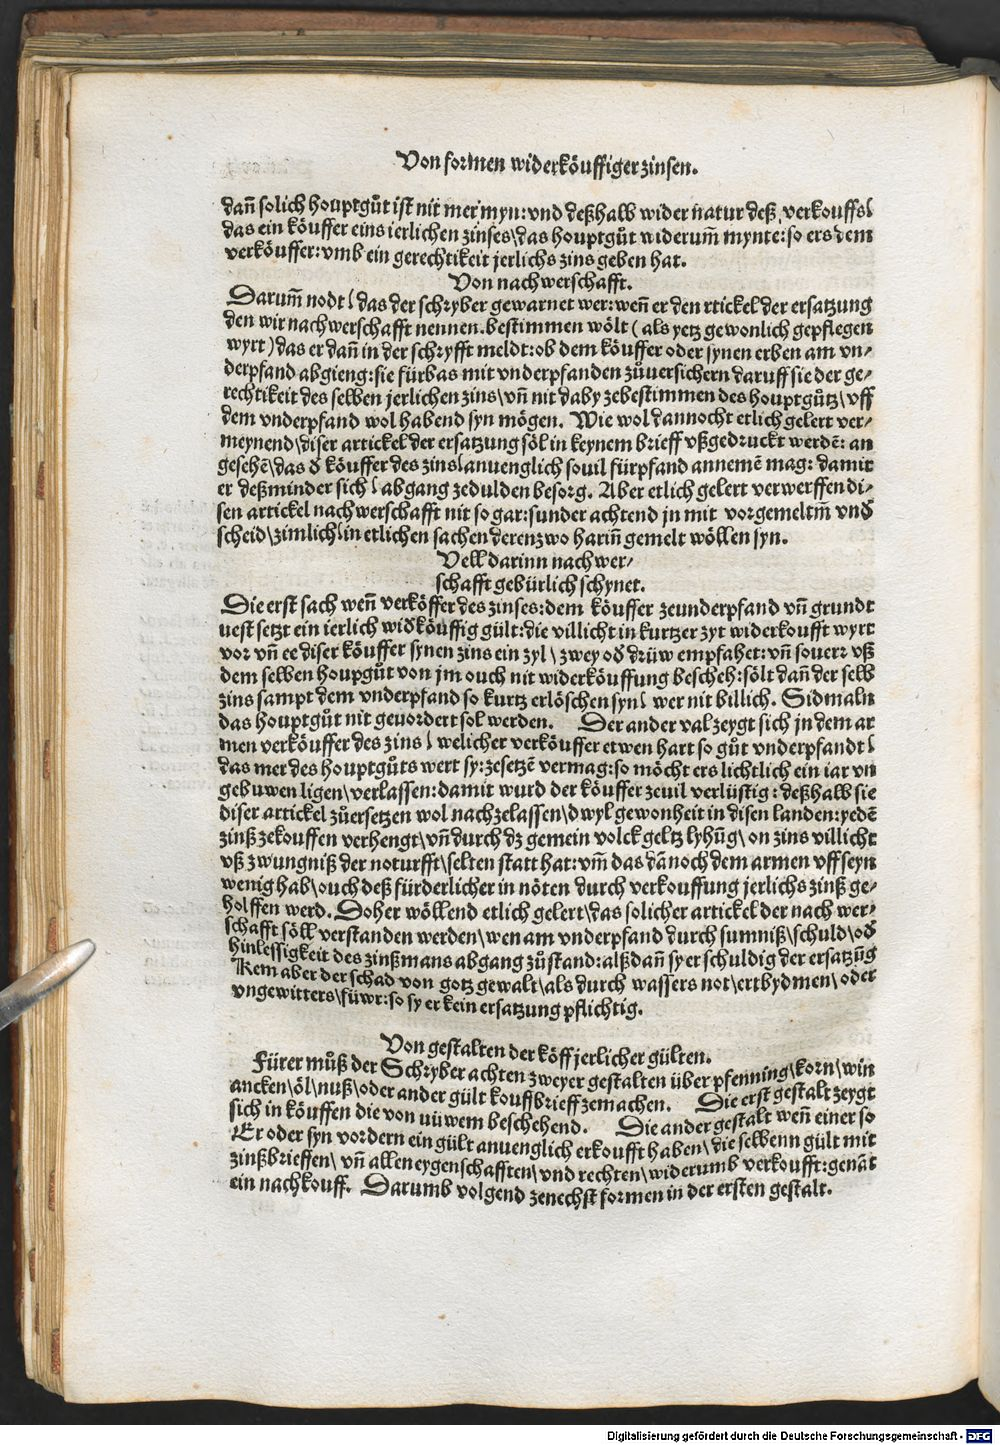 Von formen widerköuffiger zinsen.
dañ solich houptgůt ist nit mer myn: vnd deßhalb wider natur deß verkouffs\
das ein köuffer eins ierlichen zinses\ das houptgůt widerum̃ mynte: so ers dem
verköuffer: vmb ein gerechtikeit jerlichs zins geben hat.
Von nachwerschafft.
Darum̃ nodt\ das der schryber gewarnet wer: weñ er den rtickel der ersatzung
den wir nachwerschafft nennen. bestimmen wölt ( als yetz gewonlich gepflegen
wyrt ) das er dañ in der schryfft meldt: ob dem köuffer oder synen erben am vn⸗
derpfand abgieng: sie fürbas mit vnderpfanden zůuersichern daruff sie der ge⸗
rechtikeit des selben jerlichen zins\ vñ nit daby zebestimmen des houptgůtz\ vff
dem vnderpfand wol habend syn mögen. Wie wol dannocht etlich gelert ver⸗
meynend\ diser artickel der ersatzung söl in keynem brieff vßgedruckt werdẽ: an
gesehẽ\ das ð köuffer des zins\ anuenglich souil fürpfand annemẽ mag: damit
er deßminder sich\ abgang zedulden besorg. Aber etlich gelert verwerffen di⸗
sen artickel nachwerschafft nit so gar: sunder achtend jn mit vorgemeltm̃ vnð
scheid\ zimlich\ in etlichen sachen deren zwo hariñ gemelt wöllen syn.
Vell darinn nachwer⸗
schafft gebürlich schynet.
Die erst sach weñ verköffer des zinses: dem köuffer zeunderpfand vñ grundt
uest setzt ein ierlich widköuffig gült: die villicht in kurtzer zyt widerkoufft wyrt
vor vñ ee diser köuffer synen zins ein zyl\ zwey oð drüw empfahet: vñ souerr vß
dem selben houpgůt von jm ouch nit widerköuffung bescheh: sölt dañ der selb
zins sampt dem vnderpfand so kurtz erlöschen syn\ wer nit billich. Sidmaln
das houptgůt nit geuordert sol werden. Der ander val zeygt sich jn dem ar
men verköuffer des zins\ welicher verköuffer etwen hart so gůt vnderpfandt\
das mer des houptgůts wert sy: zesetzẽ vermag: so möcht ers lichtlich ein iar vn
gebuwen ligen\ verlassen: damit wurd der köuffer zeuil verlüstig: deßhalb sie
diser artickel zůersetzen wol nachzelassen\ dwyl gewonheit in disen landen: yedẽ
zinß zekouffen verhengt\ vñ durch dz gemein volck geltz lyhũg\ on zins villicht
vß zwungniß der noturfft\ selten statt hat: vm̃ das dãnoch dem armen vff seyn
wenig hab\ ouch deß fürderlicher in nöten durch verkouffung jerlichs zinß ge⸗
holffen werd. Doher wöllend etlich gelert\ das solicher artickel der nach wer⸗
schafft söll verstanden werden\ wen am vnderpfand durch sumniß\ schuld\ oð
hinlessigkeit des zinßmans abgang zůstand: alß dañ sy er schuldig der ersatzũg
Kem aber der schad von gotz gewalt\ als durch wassers not\ ertbydmen\ oder
vngewitters\ füwr: so sy er kein ersatzung pflichtig.
Von gestalten der köff jerlicher gülten.
Fürer můß der Schryber achten zweyer gestalten über pfenning\ korn\ win
ancken\ öl\ nuß\ oder ander gült kouffbrieff zemachen. Die erst gestalt zeygt
sich in köuffen die von nüwem beschehend. Die ander gestalt weñ einer so
Er oder syn vordern ein gült anuenglich erkoufft haben\ die selbenn gült mit
zinßbrieffen\ vñ allen eygenschafften\ vnd rechten\ widerumb verkoufft: genãt
ein nachkouff. Darumb volgend zenechst formen in der ersten gestalt.
Digitalisierung gefördert durch die Deutsche Forschungsgemeinschaft - DFG